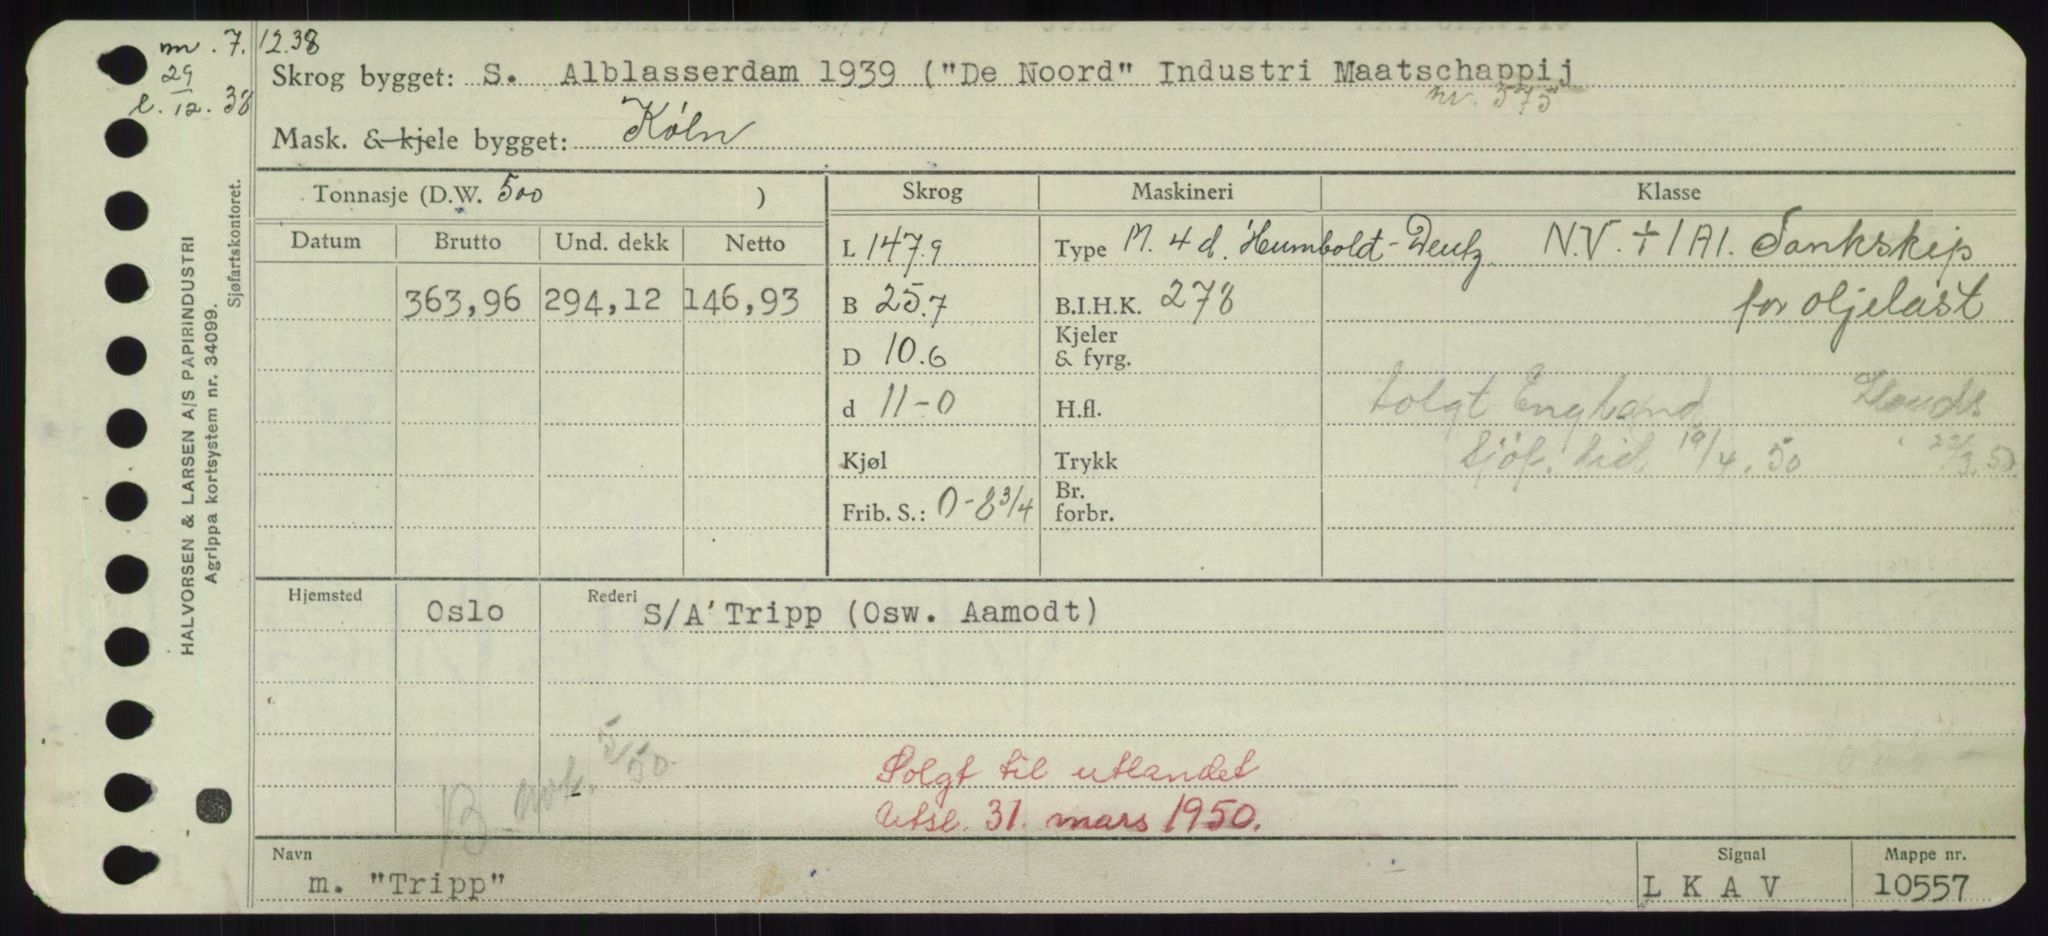 m. 7.12.38
29
l. 12. 38
Skrog bygget: S. Alblasserdam 1939 ("De Noord" Industri Maatschappij
nr. 575
Mask. & kjele bygget: Köln
Tonnasje (D.W. 500 )
Skrog
Maskineri
Klasse
Datum
Brutto
Und. dekk
Netto
363,96
294,12
146,93
L 147.9
B 25.7
D 10.6
d 11-0
Kjøl
Frib. S.: 0-8 3/4
Type M. 4 d. Humboldt-Deutz
B.I.H.K. 278
Kjeler
& fyrg.
H.fl.
Trykk
Br.
forbr.
N.V. + 1A1. Tankskip
for oljelast
Solgt England
Sjöf. tid 19/4.50
22/3.50
Hjemsted
Oslo
Rederi
S/A' Tripp (Osw. Aamodt)
5/50
Solgt til utlandet
Utsl. 31. mars 1950.
Navn
m. "Tripp"
Signal
L K A V
Mappe nr.
10557
HALVORSEN & LARSEN A/S PAPIRINDUSTRI
Agrippa kortsystem nr. 34099.
Sjøfartskontoret.